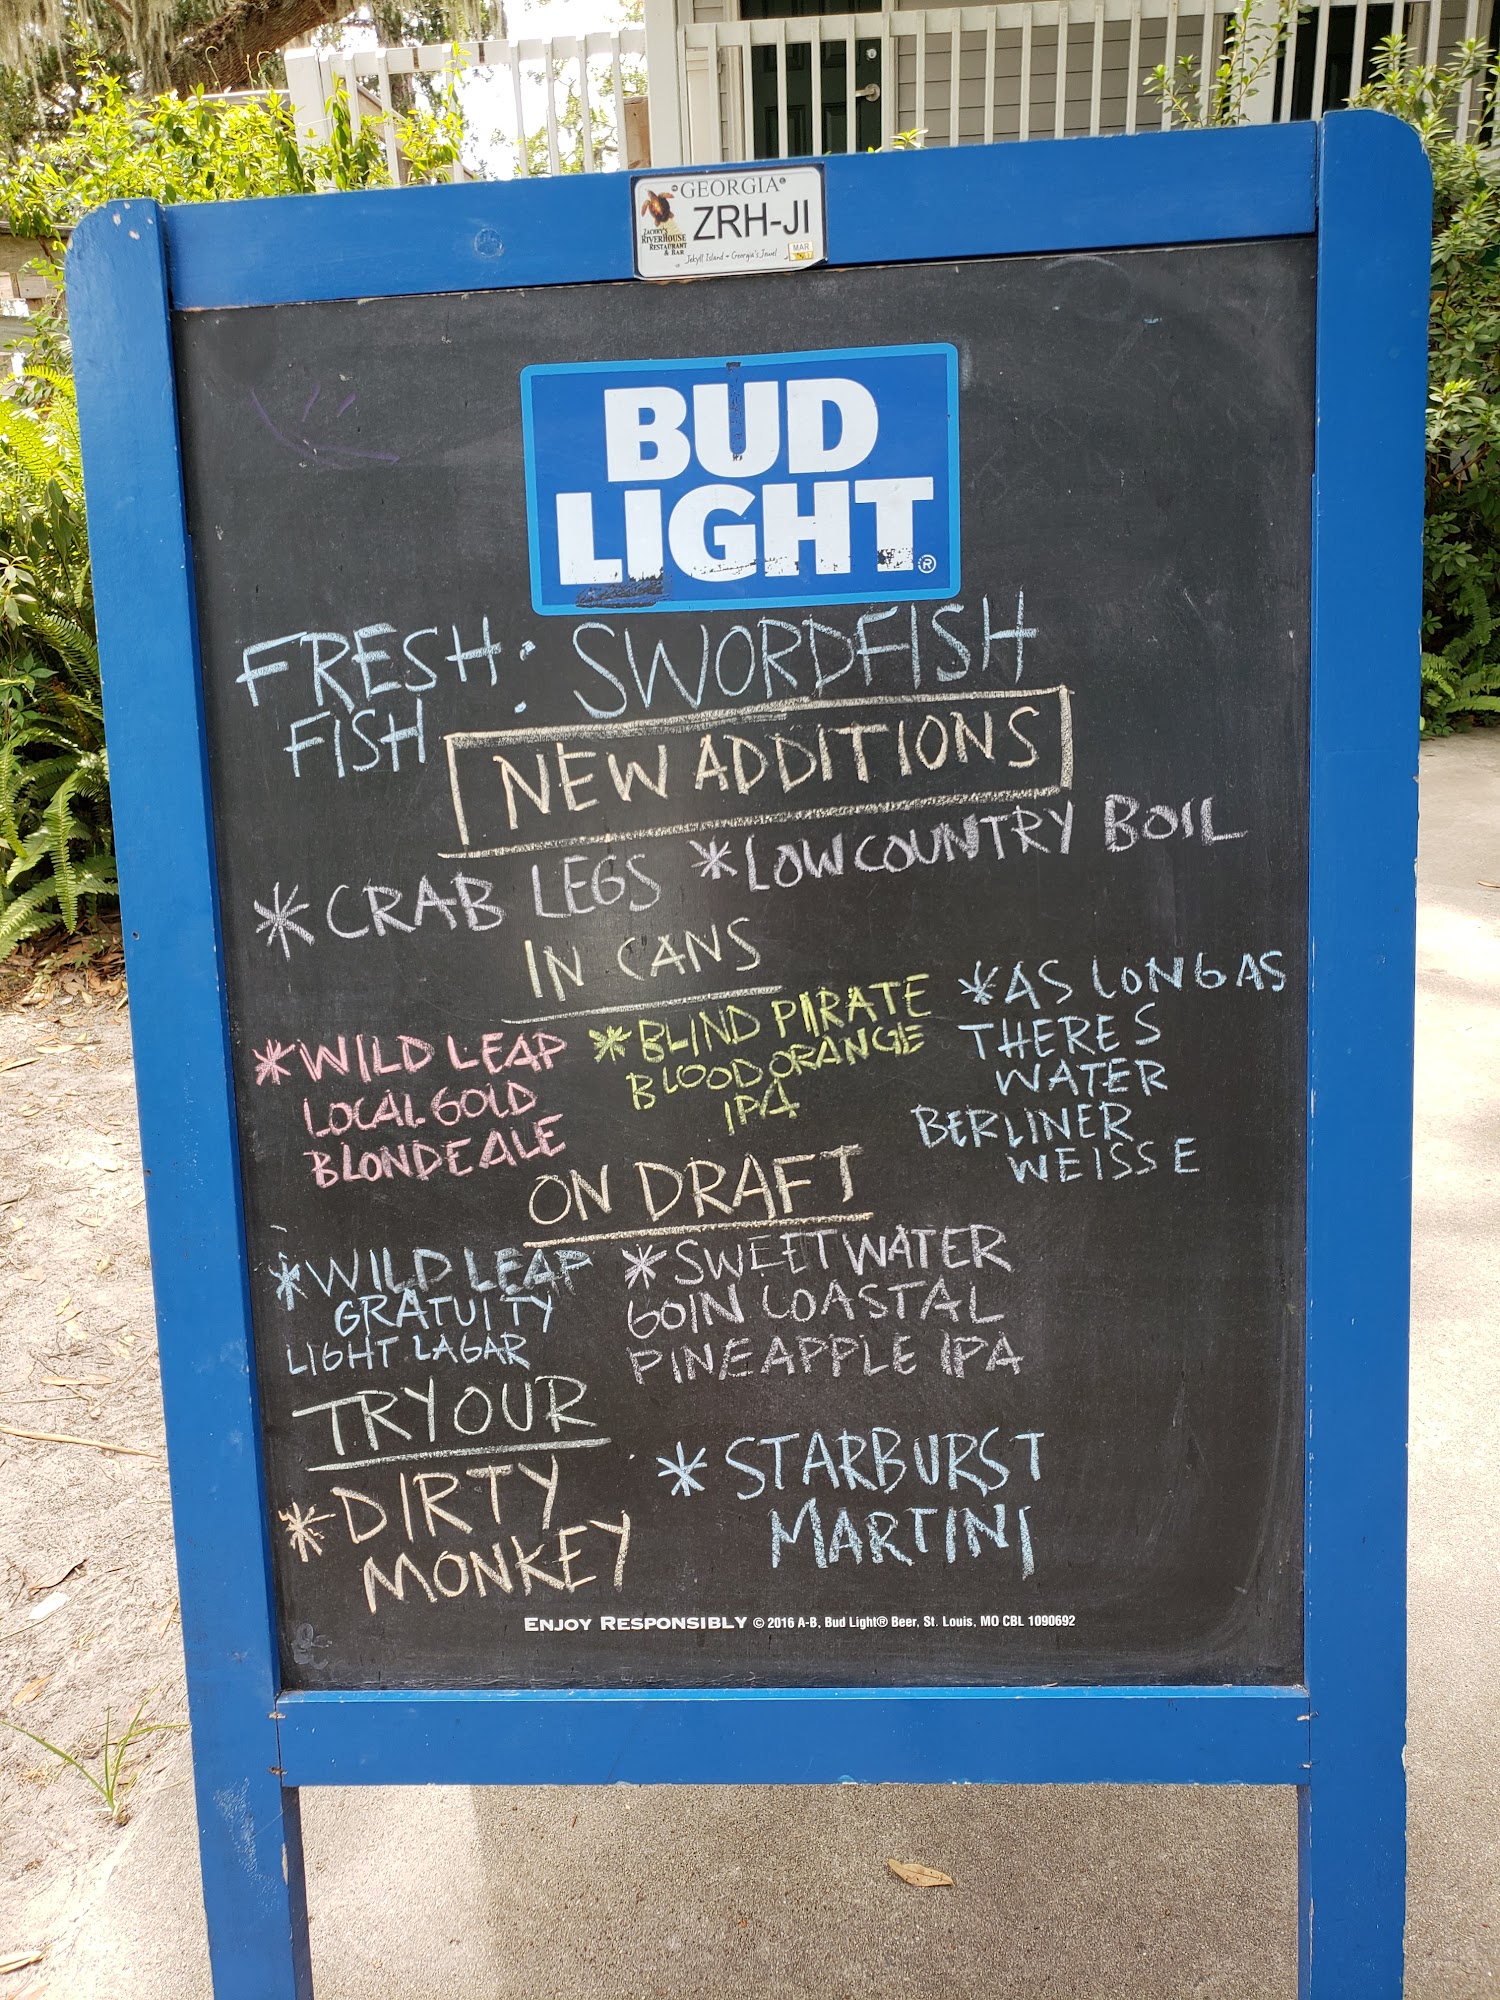 GEORGIA
ZRH-JI
ZACHRY'S
RIVERHOUSE
RESTAURANT
& BAR
MAR
Jekyll Island • Georgia's Jewel
BUD
LIGHT®
FRESH : SWORDFISH
FISH
NEW ADDITIONS
*CRAB LEGS *LOWCOUNTRY BOIL
IN CANS
*WILD LEAP
LOCAL GOLD
BLONDE ALE
*BLIND PIRATE
BLOOD ORANGE
IPA
*AS LONG AS
THERES
WATER
BERLINER
WEISSE
ON DRAFT
*WILD LEAP
GRATUITY
LIGHT LAGAR
*SWEETWATER
GOIN COASTAL
PINEAPPLE IPA
TRY OUR
*DIRTY
MONKEY
*STARBURST
MARTINI
ENJOY RESPONSIBLY © 2016 A-B, Bud Light® Beer, St. Louis, MO CBL 1090692